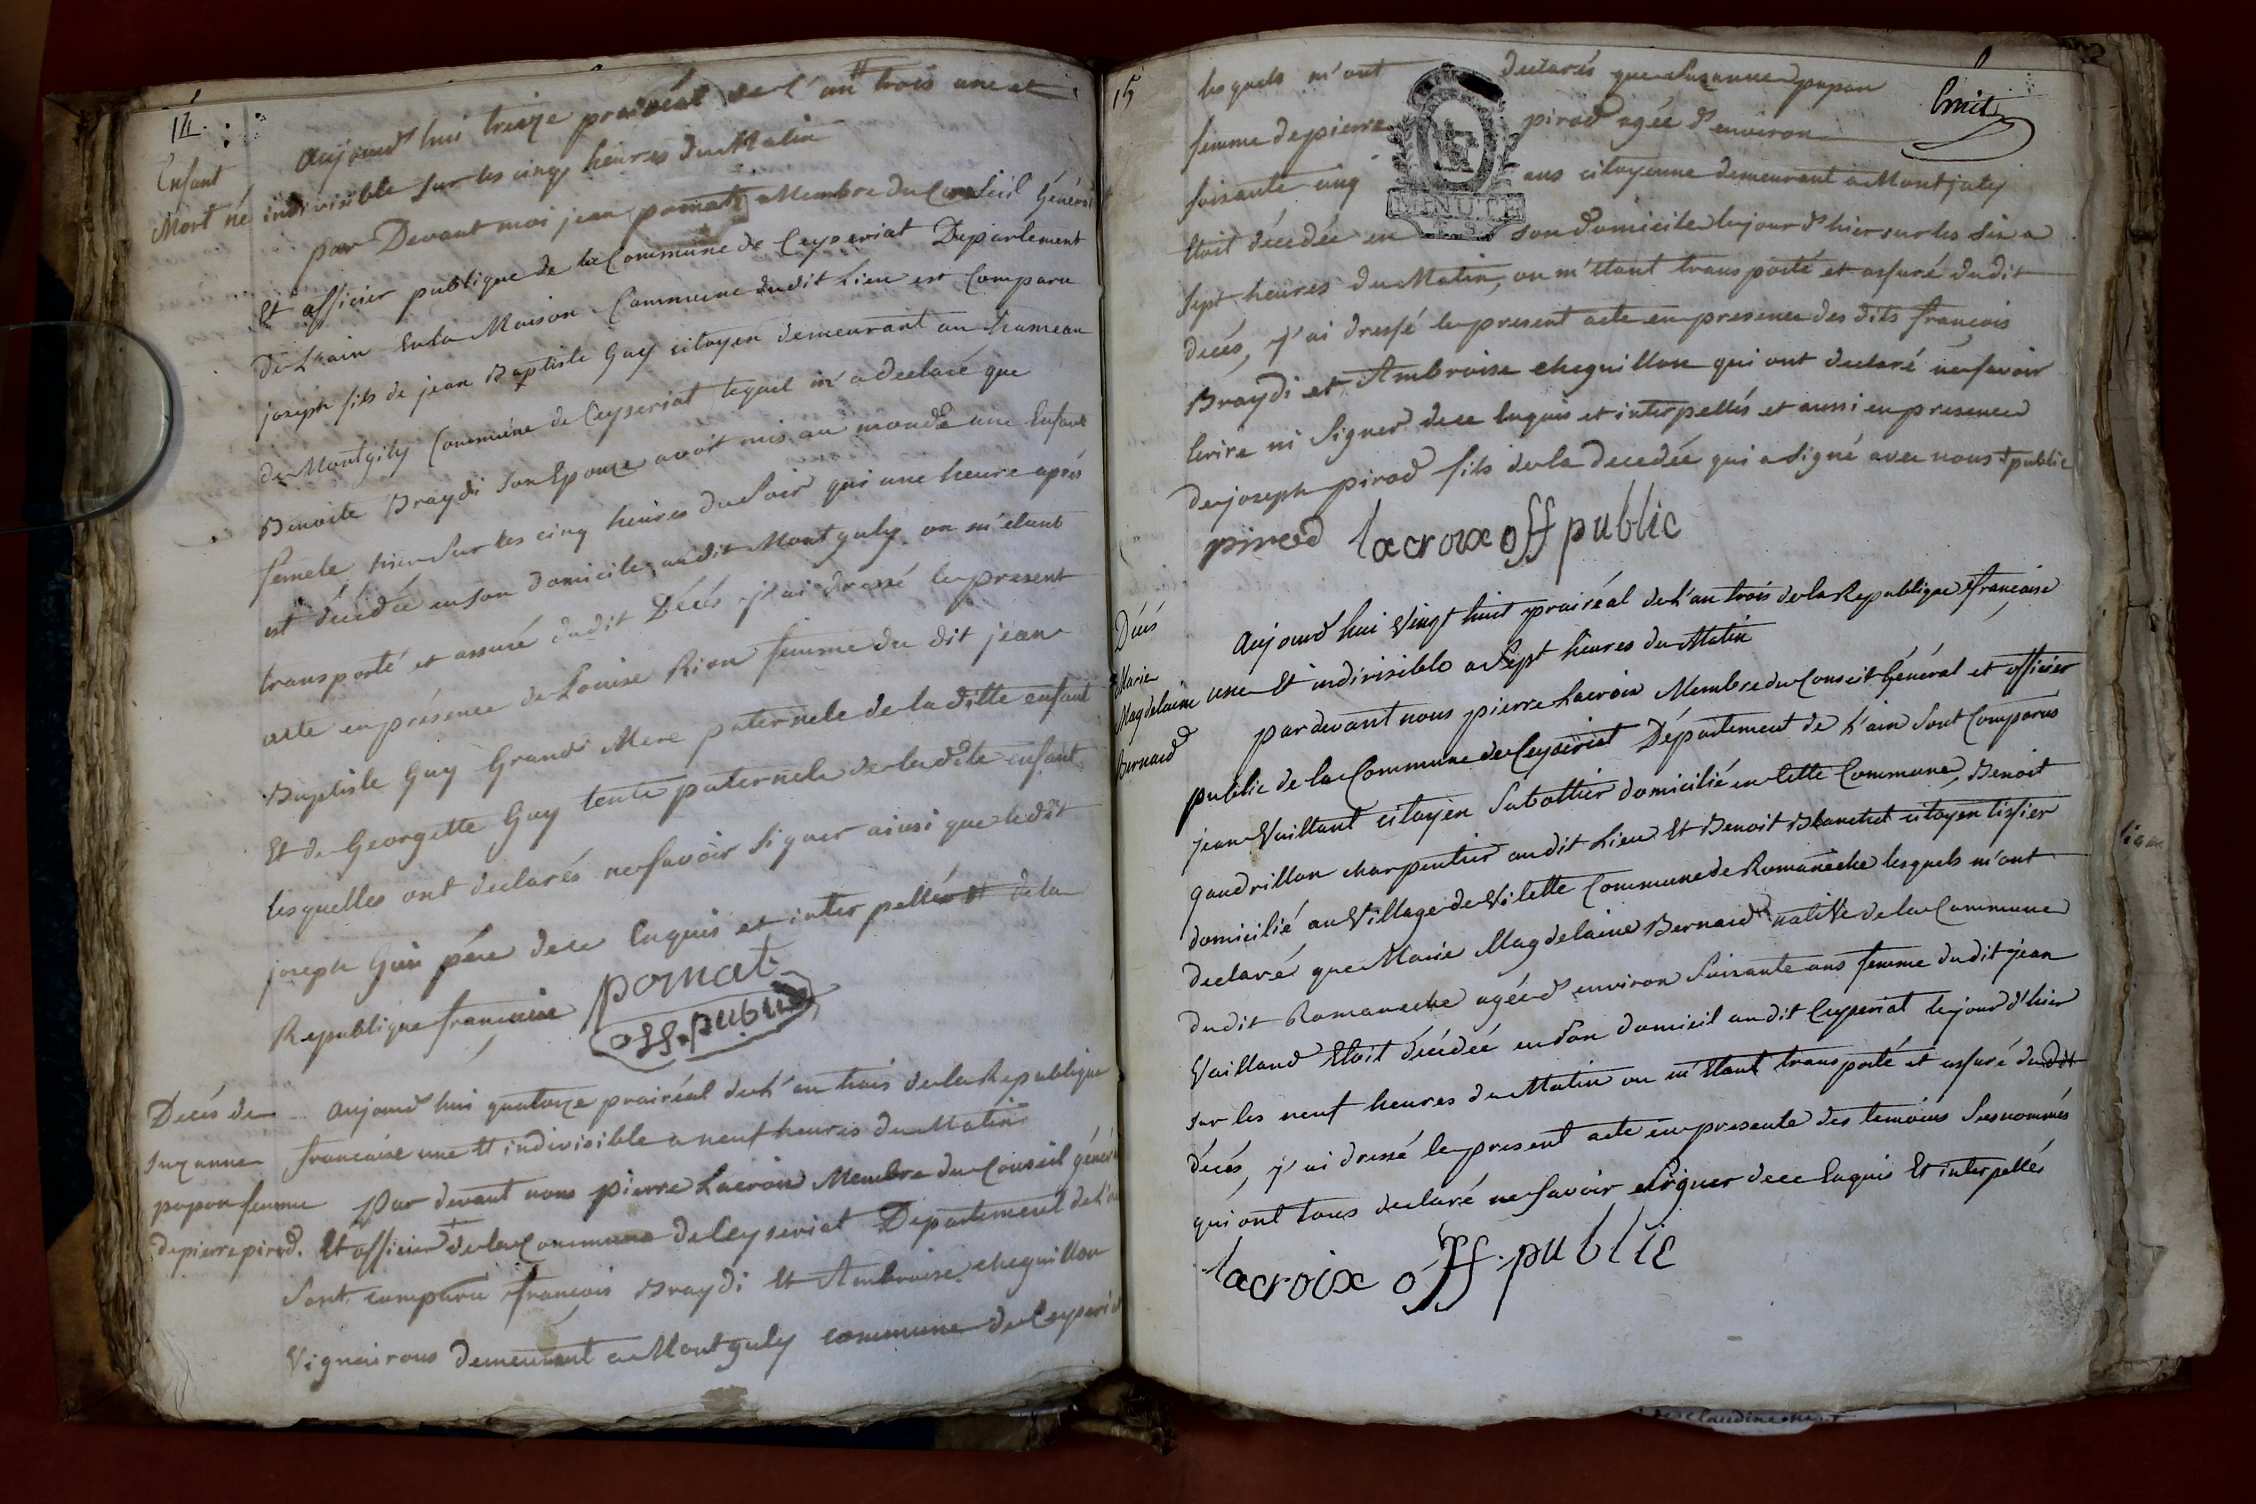 14.
Enfant
Mort né
aujourd'hui treize prairéal de l'an trois une et
indivisible sur les cinq heures du Matin
par Devant moi jean pomat Membre du Conseil Général
Et officier publique de la Commune de Ceyseriat Département
De L'ain En la Maison Commune dudit Lieu est Comparu
joseph fils de jean Baptiste Guy citoyen demeurant au hameau
de Montgily Commune de Ceyseriat lequel m'a declaré que
Benoite Braydi son Epouze avoit mis au monde une Enfant
femele hier sur les cinq heures du Soir qui une heure après
est décédée en son domicile audit Montguly on m'étant
transporté et assuré dudit Décés j'ai dressé le present
acte en présence de Louise Rion femme du dit jean
Baptiste Guy Grand Mere paternele de la ditte enfant
Et de Georgette Guy tente paternele de la dite enfant
lesquelles ont declarés ne savoir signer ainsi que ledit
joseph Gui pére de ce Enquis et interpellés de la
Republique francaise pomat
off. public
Decés de
Suzanne
papon femme
de pierre pirod.
aujourd hui quatorze prairéal de L'an trois de la Republique
francaise une Et indivisible a neuf heures du Matin
Par devant nous pierre Lacroix Membre du Conseil géné
Et officier + de la Commune de Ceyseriat Département de L'
Sont comparu françois Braydi Et Ambroise cheguillon
Vignairons demeurant a Montguly commune de Ceyseri
15
lesquels m'ont declarés que Suzanne papon
femme de pierre pirod agée d'environ
soisante cinq ans citoyenne demeurant a Montjuly
Etoit décédée en son domicile le jour d'hier sur les six a
MINUTE
sept heures du Matin, on m'étant transporté et assuré dudit
decés, j'ai dressé le present acte en presence des dits francois
Braydi et Ambroise cheguillon qui ont declaré ne savoir
Ecrire ni Signer de ce Enquis et interpellés et aussi en presence
de joseph pirod fils de la decedée qui a signé avec nous + public
pirod lacroix off public
Décés
Marie
Magdelaine
Bernard
Aujourd hui Vingt huit prairéal de L'an trois de la Republique francaise
une Et indivisible a Sept heures du Matin
par devant nous pierre Lacroix Membre du Conseil Général et officier
public de la Commune de Ceyseriat Département de L'ain Sont Comparus
jean Vaillant citoyen Sabottier domicilié en cette Commune, Benoit
gaudrillon charpentier audit Lieu Et Benoit Blanchet citoyen tissier
domicilié au Village de Vilette Commune de Romanèche lesquels m'ont
declaré que Marie Magdelaine Bernard native de la Commune
dudit Romaneche agée d'environ soixante ans femme dudit jean
Vailland Etoit décédée en son domicil audit Ceyseriat le jour d'hier
sur les neuf heures du Matin on m'Etant transporté et assuré dudit
décés, j'ai dressé le present acte en presente des temoins susnommés
qui ont tous declaré ne savoir signer de ce Enquis Et interpellés
lacroix off. public